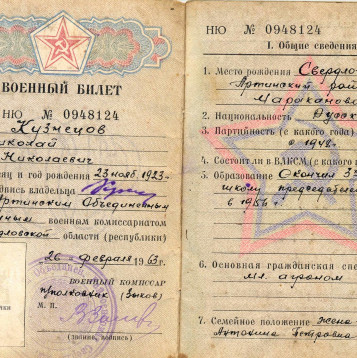 ВОЕННЫЙ БИЛЕТ
НЮ № 0948124
Кузнецов
Николай
Николаевич
месяц и год рождения 23 нояб. 1923
подпись владельца
Артинским Объединенным
военным комиссариатом
области (республики)
26 февраля 1963 г.
ВОЕННЫЙ КОМИССАР
подполковник (Зыков)
М. П.
(звание, подпись)
НЮ № 0948124
I. Общие сведения
1. Место рождения Свердло
Артинский рай
2. Национальность Русск
3. Партийность (с какого года)
с 1948.
4. Состоит ли в ВЛКСМ (с какого
5. Образование Окончил
школу председателе
в 1956 г.
6. Основная гражданская спе
мл. агроном
7. Семейное положение жена
Антонина Петровна